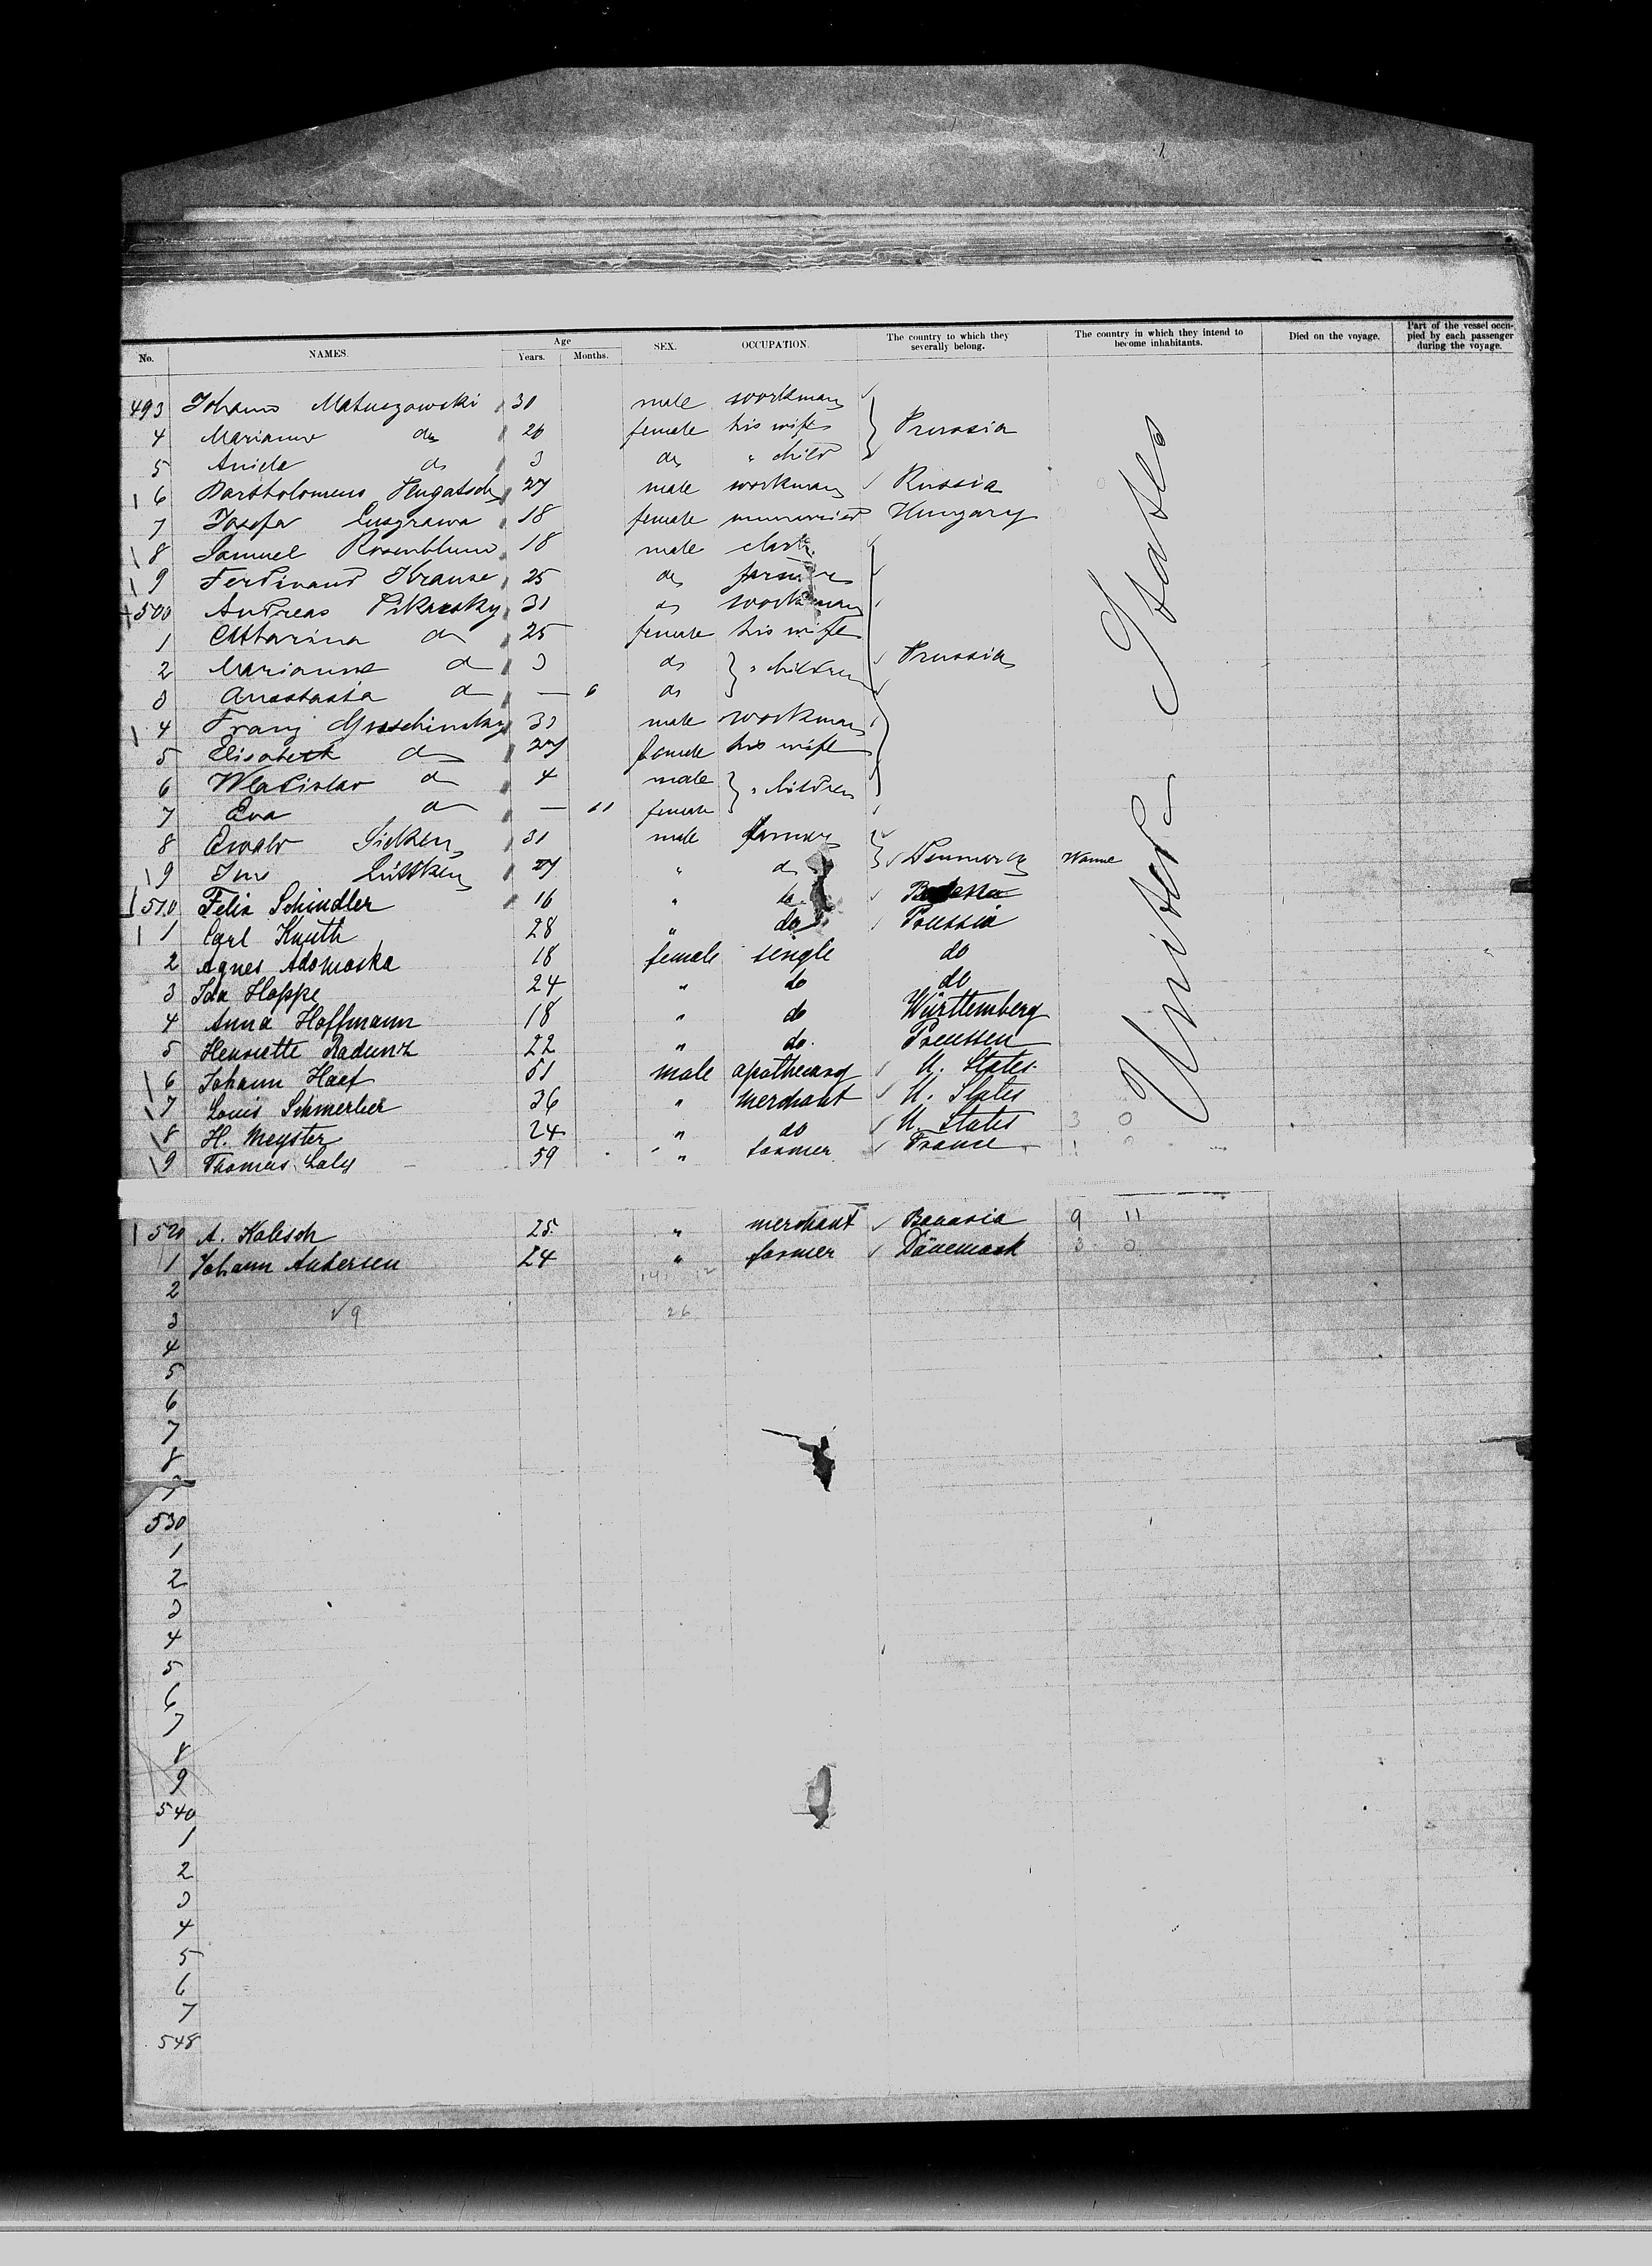 No. NAMES. Age Years. Months. SEX. OCCUPATION. The country to which they severally belong. The country in which they intend to become inhabitants. Died on the voyage. Part of the vessel occupied by each passenger during the voyage.
493 Johann Matuszowski 30 male workman
4 Marianne do 26 female his wife Prussia
5 do 3 do " child
6 Bartholomeus 27 male workman Russia
7 Josefa 18 female unmarried Hungary
8 Samuel Rosenblum 18 male clerk
9 Ferdinand Krause 25 do farmer
500 Andreas 31 do workman
1 Catharina do 25 female his wife
2 Marianne do 3 do " children Prussia
3 Anastasia do — 6 do
4 Franz 33 male workman
5 Elisabeth do 27 female his wife
6 Wladislav do 4 male " children
7 Eva do — 11 female
8 Ewald 31 male farmer
9 27 " do Denmark
510 Felix Schindler 16 " do
1 Carl Knuth 28 " do Prussia
2 Agnes Adomoska 18 female single do
3 Ida Hoppe 24 " do do
4 Anna Hoffmann 18 " do Württemberg
5 Henriette Radunz 22 " do Preussen
6 Johann Haef 51 male apothecary U. States
7 Louis Schmerber 36 " merchant U. States
8 H. Meyster 24 " do U. States 3 0
9 Thomas Laly 59 " farmer France
United States
520 A. Kalisch 25 " merchant Bavaria 9 11
1 Johann Andersen 24 " farmer Dänemark 3 0
2
3 √9 26
4
5
6
7
8
9
530
1
2
3
4
5
6
7
8
9
540
1
2
3
4
5
6
7
548